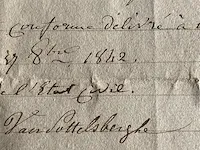 Conforme délivré à
27 8bre 1842.
l'Etat Civil.
Van Pottelsberghe